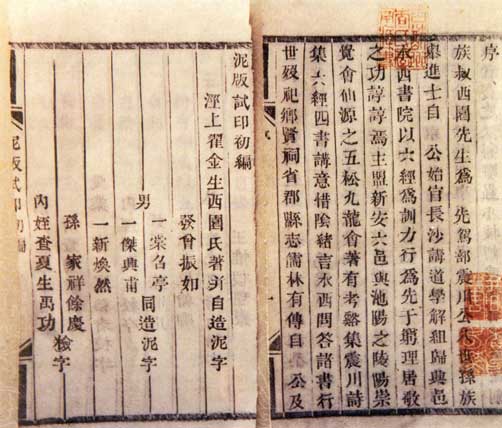 序
族叔西園先生爲 先駕部震川公九世孫族
舉進士自 公始官長沙講道學解組歸與邑
水西書院以六經爲訓力行爲先于窮理居敬
之功諄諄焉主盟新安六邑與池陽之陵陽崇
覺會仙源之五松九龍會著有考谿集震川詩
集六經四書講意惜陰豬吉水西問答諸書行
世歿祀鄉賢祠省郡縣志儒林有傳自 公及
泥版試印初編
涇上翟金生西園氏著并自造泥字
發曾振如
男 一棠名亭 同造泥字
一傑興甫
一新煥然
孫 家祥餘慶
檢字
內姪查夏生禹功
泥版試印初編